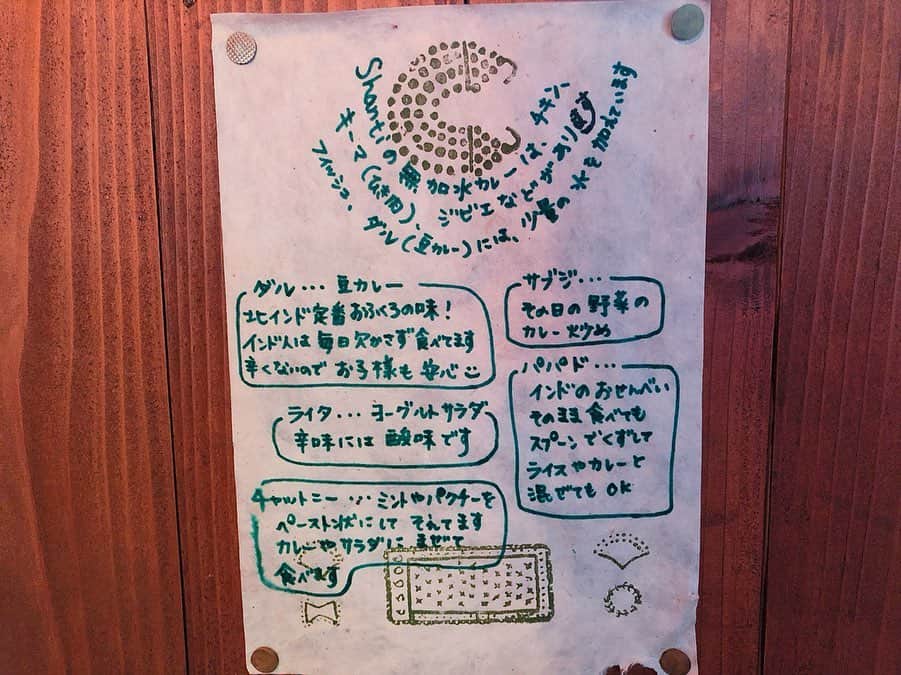 Shantiの無加水カレーは、チキン、
キーマ(鶏肉)、ジビエなどがあります
フィッシュ、ダル(豆カレー)には、少量の水を加えています
ダル... 豆カレー
北インド定番おふくろの味!
インド人は毎日欠かさず食べてます
辛くないのでお子様も安心
ライタ... ヨーグルトサラダ
辛味には酸味です
チャットニー... ミントやパクチーを
ペースト状にしてそえてます
カレーやサラダにまぜて
食べます
サブジ...
その日の野菜の
カレー炒め
パパド...
インドのおせんべい
そのまま食べても
スプーンでくずして
ライスやカレーと
混ぜてもOK